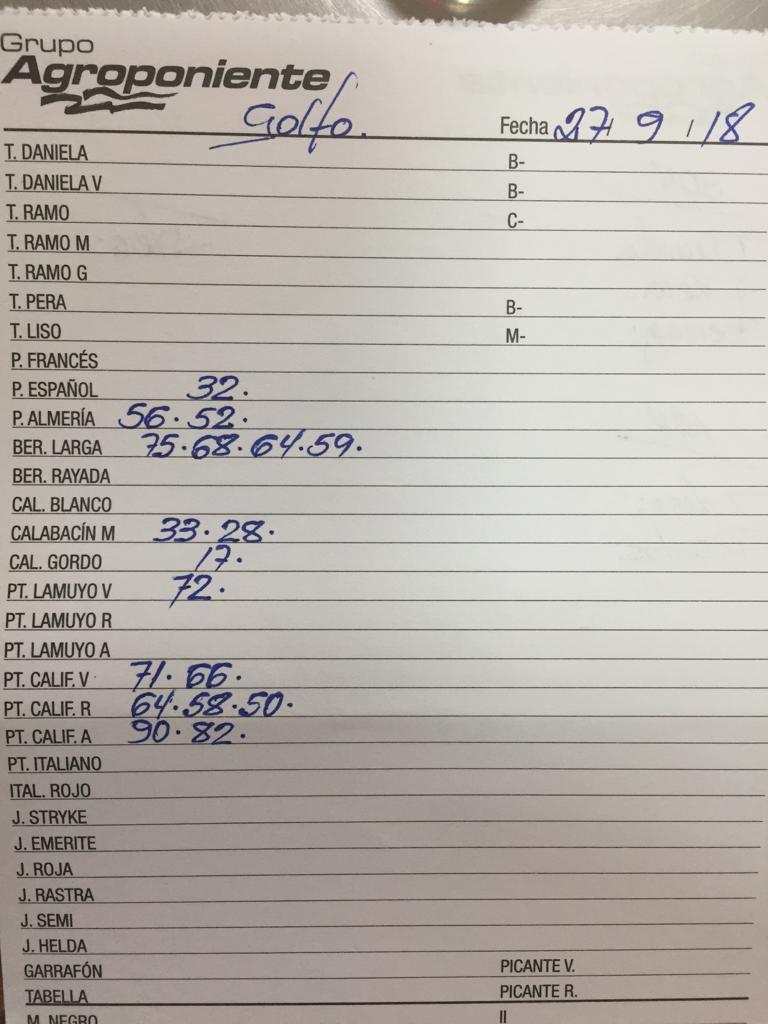 Grupo
Agroponiente
Golfo. Fecha 27 / 9 / 18
T. DANIELA B-
T. DANIELA V B-
T. RAMO C-
T. RAMO M
T. RAMO G
T. PERA B-
T. LISO M-
P. FRANCÉS
P. ESPAÑOL 32.
P. ALMERÍA 56. 52.
BER. LARGA 75. 68. 64. 59.
BER. RAYADA
CAL. BLANCO
CALABACÍN M 33. 28.
CAL. GORDO 17.
PT. LAMUYO V 72.
PT. LAMUYO R
PT. LAMUYO A
PT. CALIF. V 71. 66.
PT. CALIF. R 64. 58. 50.
PT. CALIF. A 90. 82.
PT. ITALIANO
ITAL. ROJO
J. STRYKE
J. EMERITE
J. ROJA
J. RASTRA
J. SEMI
J. HELDA
GARRAFÓN PICANTE V.
TABELLA PICANTE R.
M. NEGRO II